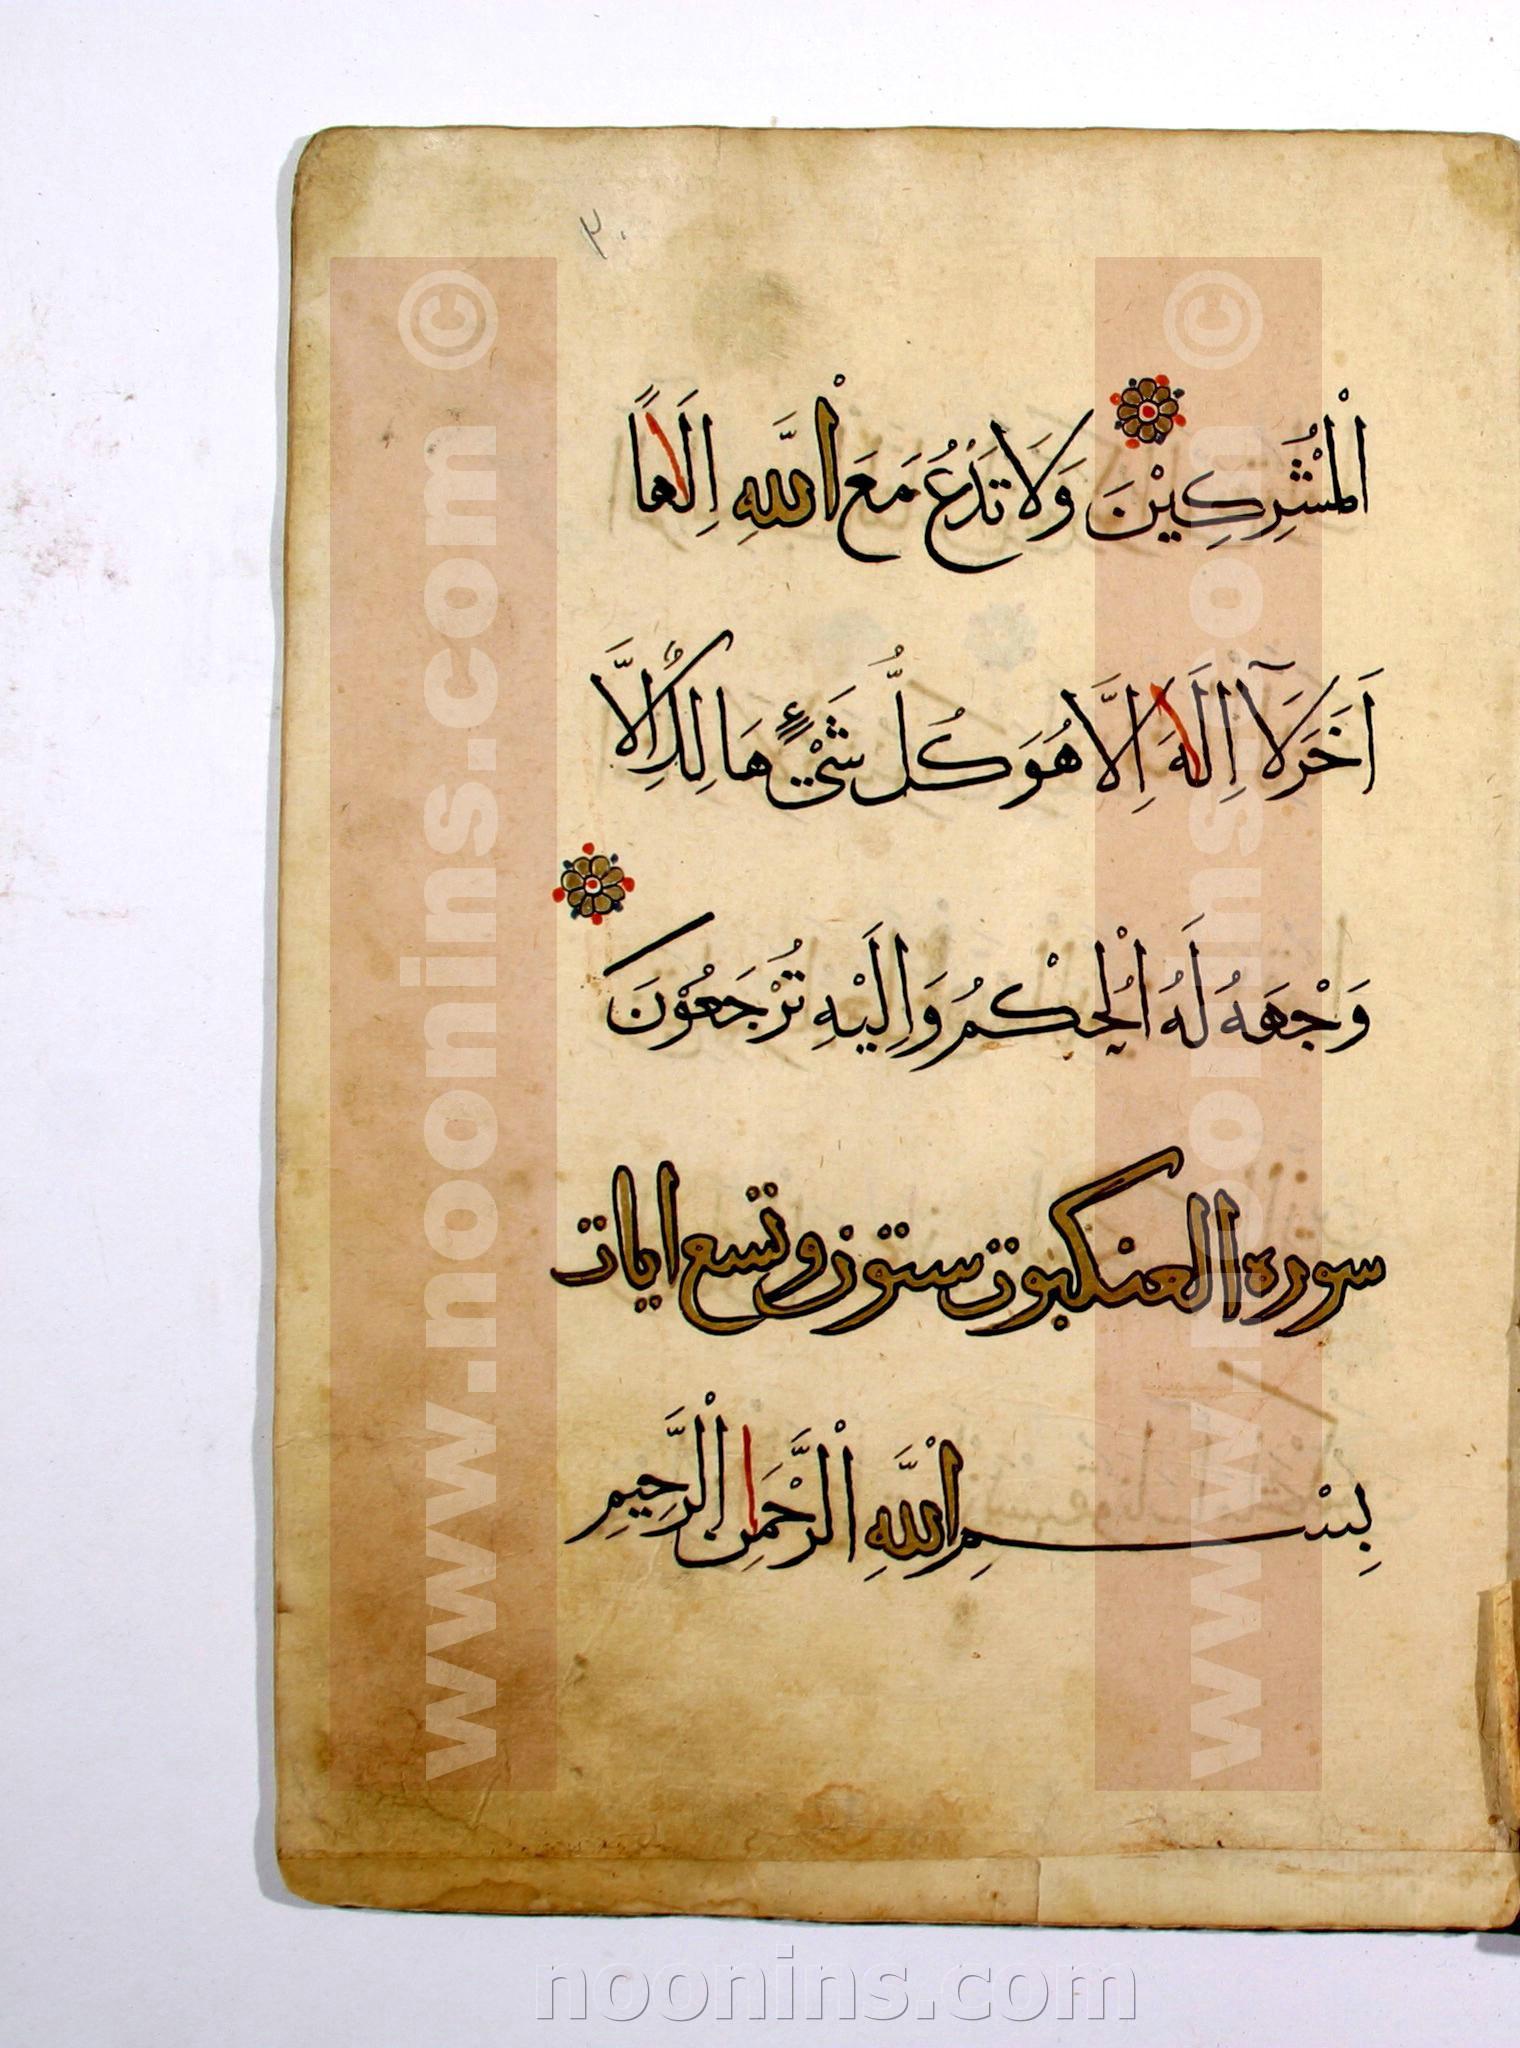 ۳۰
الْمُشْرِكِيْنَ وَلَا تَدْعُ مَعَ اْللَّهِ اِلَاهاً
اَخَرَ لَآ اِلَاهَ اِلَّا هُوَ كُلُّ شَيْءٍ هَالِكٌ اِلَّا
وَجْهَهُ لَهُ اْلحُكْمُ وَاِلَيْهِ تُرْجَعُوْنَ
سورة العنكبوت ستون وتسع ايات
بِسْمِ اْللَّهِ اْلرَّحْمَانِ اْلرَّحِيمِ
www.noonins.com ©
www.noonins.com ©
noonins.com